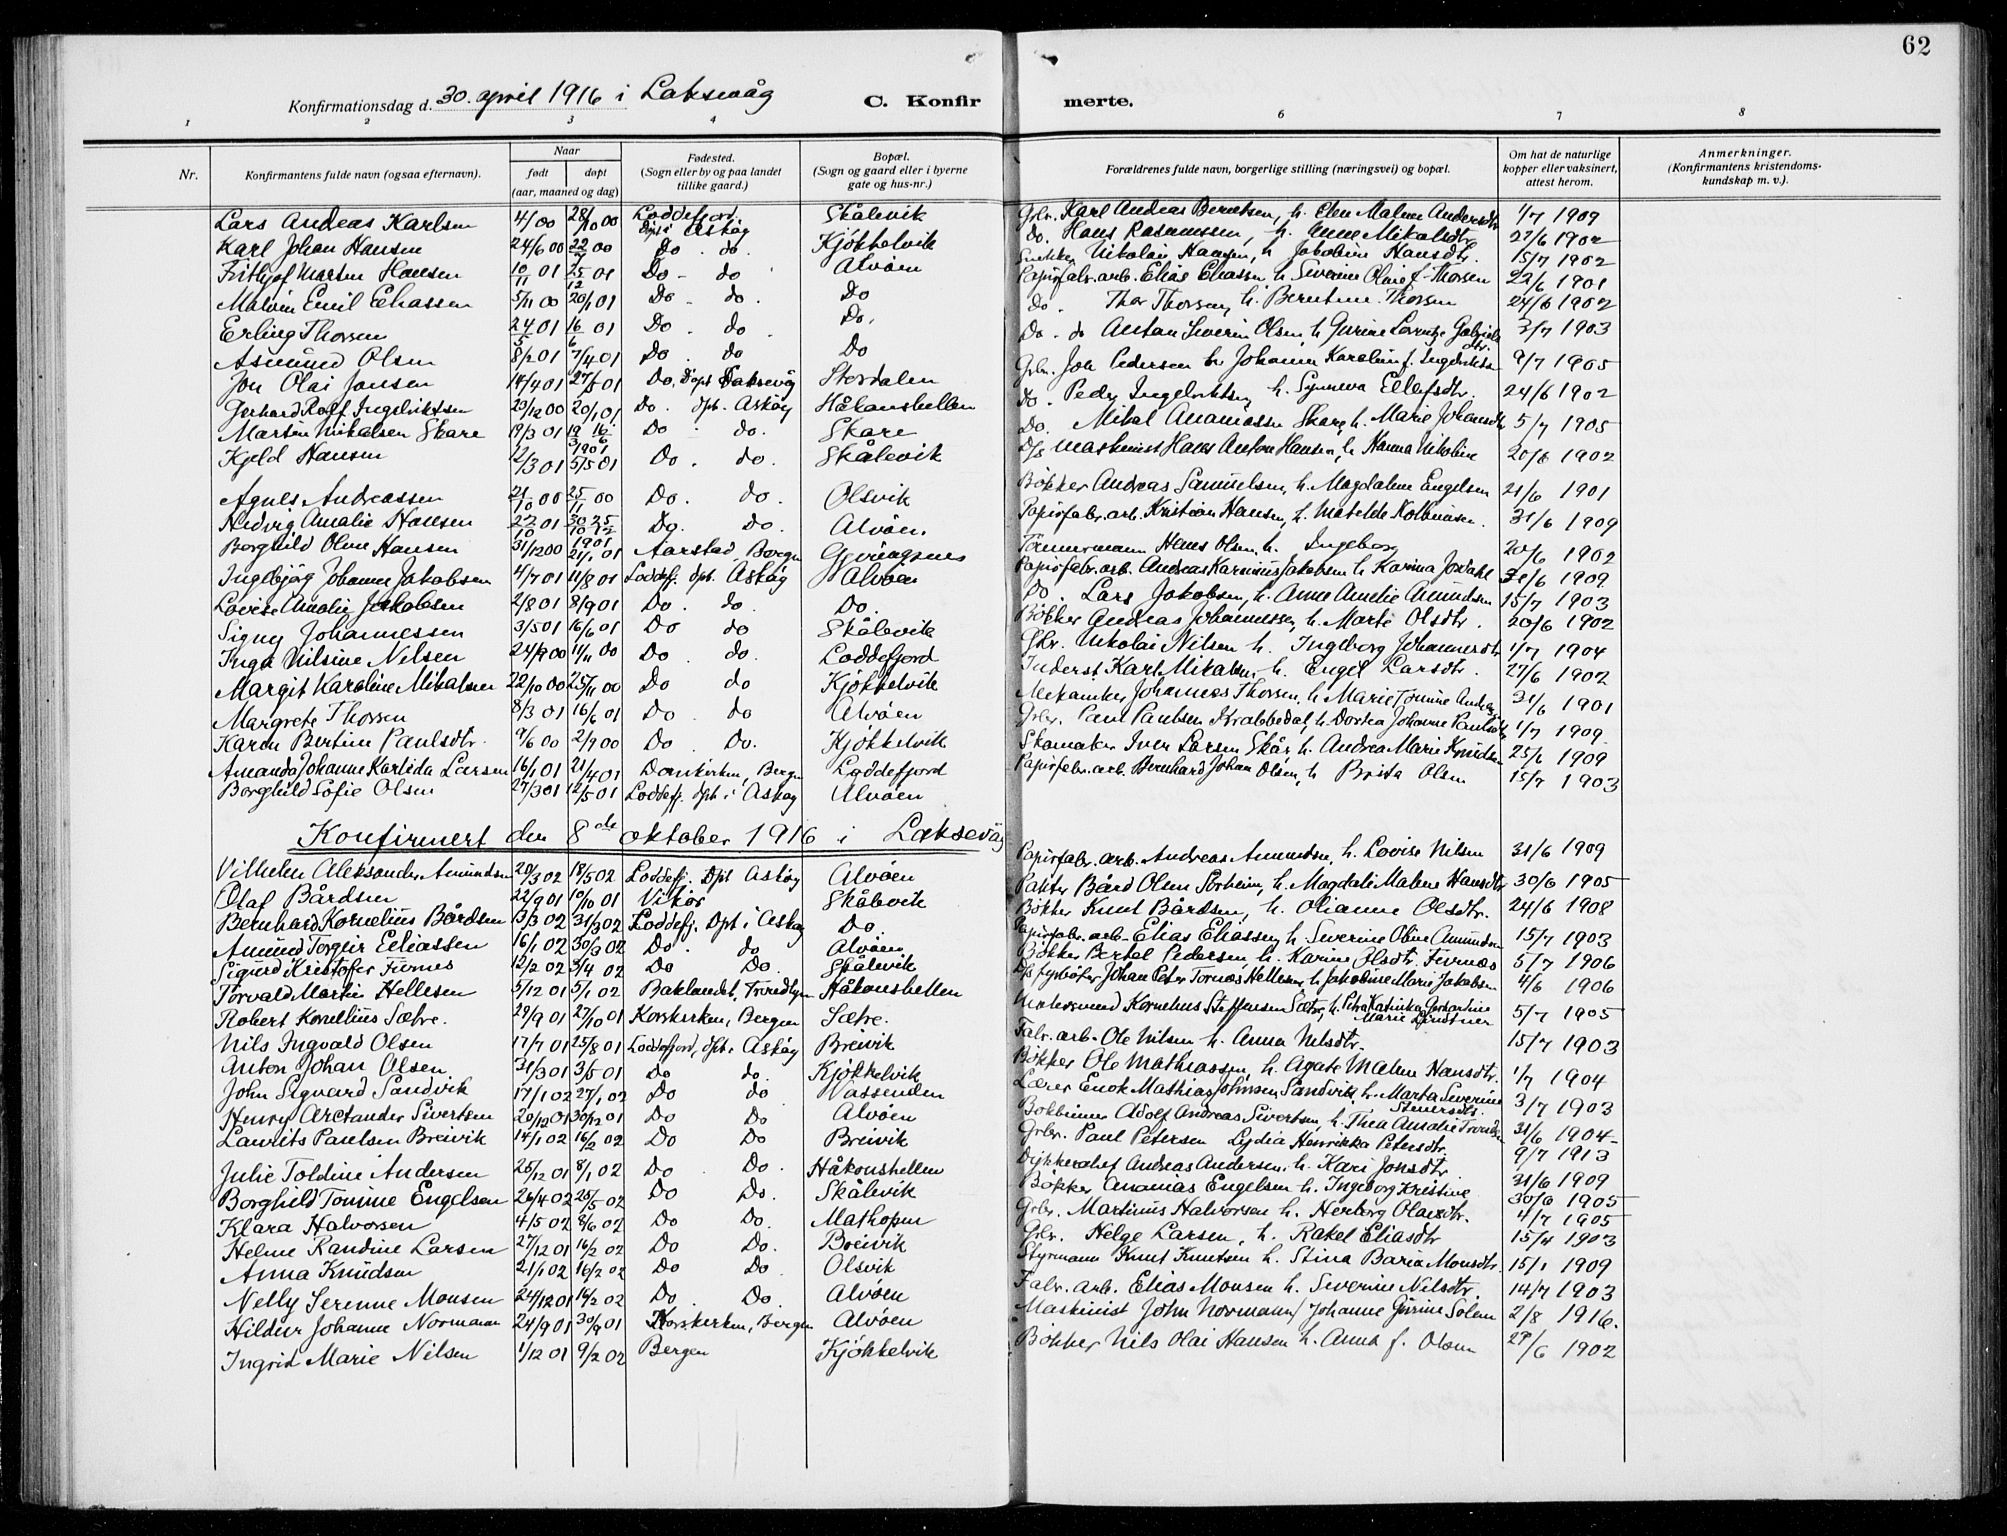 62
Konfirmationsdag d. 30. april 1916 i Laksevåg C. Konfirmerte.
1 2 3 4 6 7 8
Nr. Konfirmantens fulde navn (ogsaa efternavn). Naar født døpt (aar, maaned og dag) Fødested. (Sogn eller by og paa landet tillike gaard.) Bopæl. (Sogn og gaard eller i byerne gate og hus-nr.) Forældrenes fulde navn, borgerlige stilling (næringsvei) og bopæl. Om hat de naturlige kopper eller vaksinert, attest herom. Anmerkninger. (Konfirmantens kristendomskundskap m. v.).
Lars Andreas Karlsen 4/ 00 28/10 00 Loddefjord Døpt i Askøy Skålevik Grbr. Karl Andreas Berntsen, h. Elen Malene Andersdtr 1/7 1909
Karl Johan Hansen 24/6 00 22/7 00 Do. do. Kjøkkelvik Do. Hans Rasmussen, h. Anne Mikalsdtr. 27/6 1902
Frithjof Marten Hansen 10/11 01 25/12 01 Do - do Alvøen Snekker Nikolai Hansen, h. Jakobine Hansdtr. 15/7 1902
Malvin Emil Eliassen 5/11 00 20/1 01 Do - do. Do Papirfabr. arb. Elias Eliassen, h. Severine Oline f. Thorsen 22/6 1901
Erling Thorsen 24/5 01 16/6 01 Do. do. Do. Do. Thor Thorsen, h. Berntine Thorsen 24/6 1902
Asmund Olsen 8/2 01 7/4 01 Do. do Do Do. do Anton Severin Olsen, h. Gurine Lorentze Gabrielsdtr. 3/7 1903
Jon Olai Jonsen 14/4 01 27/5 01 Do, Døpt Laksevåg Stordalen Grbr. Jon Pedersen h. Johanna Karoline f. Ingebriktsen 9/7 1905
Gerhard Rolf Ingebriktsen 23/12 00 20/1 01 Do. dpt. Askøy Håkonshellen Do. Peder Ingebriktsen, h. Synneva Ellefsdtr. 24/6 1902
Martin Mikalsen Skare 19/3 01 16/6 1901 Do. do. Skare Do. Mikal Ananiassen Skare, h. Marie Johansdtr 5/7 1905
Kjeld Hansen 12/3 01 5/5 01 Do. do. Skålevik D/s maskinist Hans Anton Hansen, h. Hanna Nikoline 20/6 1902
Agnes Andreassen 21/10 00 25/11 00 Do. do. Olsvik Bøkker Andreas Samuelsen, h. Magdalene Engelsen 21/6 1901
Hedvig Amalie Hansen 27/10 01 25/12 1901 Do. Do. Alvøen. Papirfabr. arb. Kristian Hansen, h. Matelde Kolbensen. 31/6 1909
Borghild Oline Hansen 31/12 00 21/1 01 Aarstad, Bergen Gjeringsnes Tømmermann Hans Olsen, h. Ingeborg 20/6 1902
Ingebjørg Johanne Jakobsen 4/7 01 11/8 01 Loddefj. dpt. Askøy Alvøen Papirfabr. arb. Andreas Karinius Jakobsen h. Karina Josdahl 31/6 1909
Lovise Amalie Jakobsen 2/8 01 8/9 01 Do. do. Do. Do. Lars Jakobsen, h. Anne Amalie Amundsen 15/7 1903
Signy Johannessen 3/5 01 16/6 01 Do do Skålevik Bøkker Andreas Johannessen, h. Marte Olsdtr. 20/6 1902
Inga Nilsine Nilsen 24/9 00 11/11 00 Do. do. Loddefjord Gbr. Nikolai Nilsen h. Ingeborg Johannesdtr 1/7 1904
Margit Karoline Mikalsen 22/10 00 25/11 00 Do do Kjøkkelvik Inderst Karl Mikalsen, h. Engel Larsdtr. 27/6 1902
Margrete Thorsen 8/3 01 16/6 01 Do. do Alvøen Mekaniker Johannes Thorsen, h. Marie Tomine 31/6 1901
Karen Bertine Paulsdtr. 9/6 00 2/9 00 Do. Do. Kjøkkelvik Grbr. Paul Paulsen Krabbedal, h. Dortea Johanne Paulsdtr 1/7 1909
Amanda Johanne Karlida Larsen 16/1 01 21/4 01 Domkirken, Bergen Loddefjord Skomaker Iver Larsen Skår, h. Andrea Marie Knudsen 25/6 1909
Borghild Sofie Olsen 27/3 01 12/5 01 Loddefj. dpt i Askøy Alvøen Papirfabr. arb. Bernhard Johan Olsen, h Brita Olsen 15/7 1903
Konfirmert den 8de oktober 1916 i Laksevåg
Vilhelm Aleksander Amundsen 20/3 02 18/5 02 Loddefj. Dpt Askøy Alvøen Papirfabr. arb. Andreas Amundsen, h. Lovise Nilsen 31/6 1909
Olaf Bårdsen 22/9 01 10/10 01 Vikør Skålevik Bård Olsen Sørheim, h. Magdali Malene Hansdtr 30/6 1905
Bernhard Kornelius Bårdsen 13/3 02 31/3 02 Loddefj. Dpt i Askøy Do. Bøkker Knut Bårdsen, h. Olianne Olsdtr. 24/6 1908
Amund Torgeir Eeliassen 16/1 02 30/3 02 Do. do Alvøen Papirfabr. arb. Elias Eliassen, h. Severine Oline Amundsen 15/7 1903
Sigurd Kristofer Fivnes 12/2 02 3/4 02 Do Do. Skålevik Bøkker Bertel Pedersen h. Karine Olsdtr. Fivnæs 5/7 1906
Torvald Martin Hellesen 5/12 01 5/1 02 Baklandet, Trondhjem Håkonshellen D/s fyrbøter Johan Peter Tornæs Hellesen, h. Jakobine Marie Jakobsen 4/6 1906
Robert Kornellius Sætre. 29/9 01 27/10 01 Korskirken, Bergen Sætre. Kornelius Steffensen Sætre, h. Petra Katinka Gerhardine Marie Lindtner 5/7 1905
Nils Ingvald Olsen 17/7 01 25/8 01 Loddefjord, dpt i Askøy Breivik Fabr. arb. Ole Nilsen h. Anna Nilsdtr. 15/7 1903
Anton Johan Olsen 31/3 01 3/5 01 Do do. Kjøkkelvik Bøkker Ole Mathiassen, h. Agate Malene Hansdtr. 1/7 1904
John Sigvard Sandvik 17/1 02 27/1 02 Do do Vassenden Lærer Enok Mathias Johnsen Sandvik, h. Marta Severine Steversdtr. 3/7 1903
Henry Arctander Sivertsen 20/12 01 30/12 01 Do Do Alvøen Bokbinner Adolf Andreas Sivertsen, h. Thea Amalie 31/6 1904
Laurits Paulsen Breivik 14/1 02 16/2 02 Do Do Breivik Grbr. Paul Petersen Lydia Henrikka Petersdtr. 9/7 1913
Julie Toldine Andersen 25/12 01 8/1 02 Do. Do. Håkonshellen Dykkerchef Andreas Andersen, h. Kari Jonsdtr. 31/6 1909
Borghild Tomine Engelsen 26/4 02 25/5 02 Do Do. Skålevik Bøkker Ananias Engelsen h. Ingeborg Kristine 30/6 1905
Klara Halvorsen 4/5 02 8/6 02 Do Do. Mathopen Grbr. Martinus Halvorsen h. Herborg Olavsdtr. 4/7 1905
Helene Randine Larsen 27/12 01 16/2 02 Do Do. Breivik Grbr. Helge Larsen, h. Rakel Eliasdtr 15/4 1903
Anna Knudsen 21/1 02 16/2 02 Do Do Olsvik Styrmann Knut Knutsen h. Stina Baria Monsdtr. 15/1 1909
Nelly Serenne Monsen 24/12 01 16/2 02 Do. Do. Alvøen Fabr. arb. Elias Monsen h. Severine Nilsdtr. 14/7 1903
Hildur Johanne Normann 24/9 01 30/9 01 Korskerken, Bergen Alvøen Maskinist John Normann / Johanne Gurine Solem 2/8 1916.
Ingrid Marie Nilsen 1/12 01 9/2 02 Bergen Kjøkkelvik Bøkker Nils Olai Hansen h. Anna f. Olsen 29/6 1902